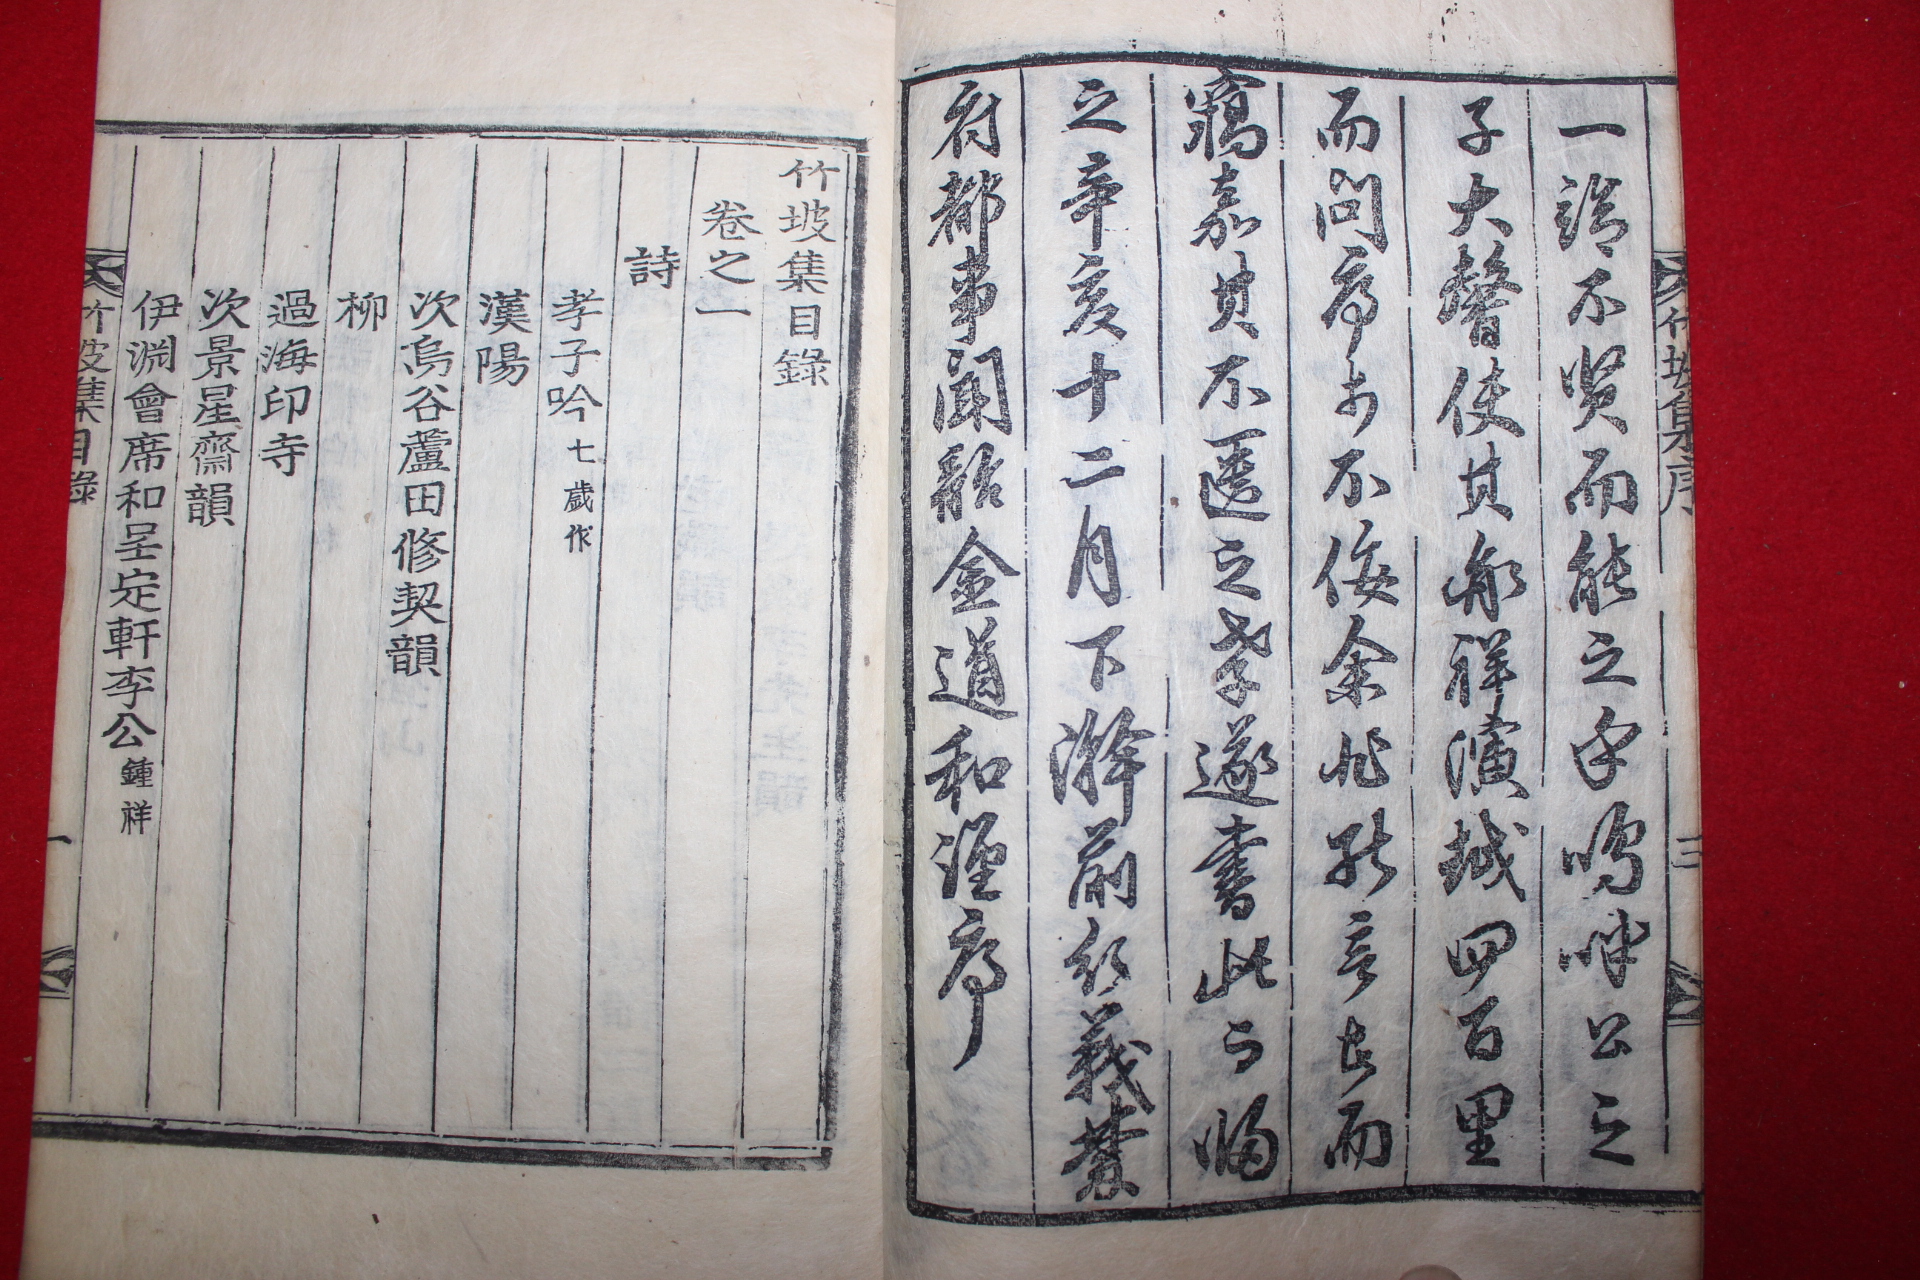 竹坡集序
三
一詩不賢而能之乎嗚呼公之
子大馨使其甥祥演越四百里
而問序於不佞余非能言者而
竊嘉其不匱之孝遂書此而歸
之辛亥十二月下澣前行義禁
府都事聞韶金道和謹序
竹坡集目錄
卷之一
詩
孝子吟七歲作
漢陽
次烏谷蘆田修契韻
柳
過海印寺
次景星齋韻
伊淵會席和呈定軒李公鍾祥
竹坡集目錄
一